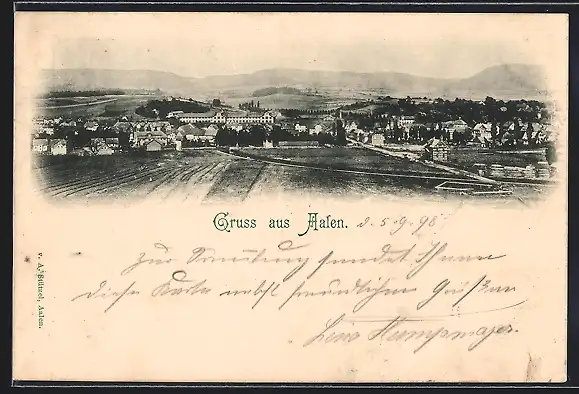 Gruss aus Aalen. d. 5.9.98
Zur Erinnerung sendet Ihnen
diese Karte nebst freundlichen Grüßen
v. A. Stützel, Aalen.